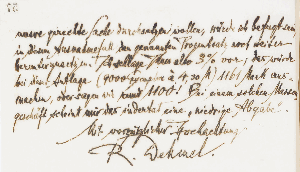 unsre gerechte Sache durchsetzen wollen, würde ich befugt sein
in diesem Ausnahmefall den genannten Prozentsatz noch weiter
Ich schlage Ihnen also 3% vor; das würde
bei einer Auflage (9000 Exemplare à 4,30 M) 1161 Mark aus-
machen, oder sagen wir rund 1100! Bei einem solchen Massen-
geschäft scheint mir das eine „niedrige Abgabe".
Mit vorzüglicher Hochachtung
R. Dehmel.